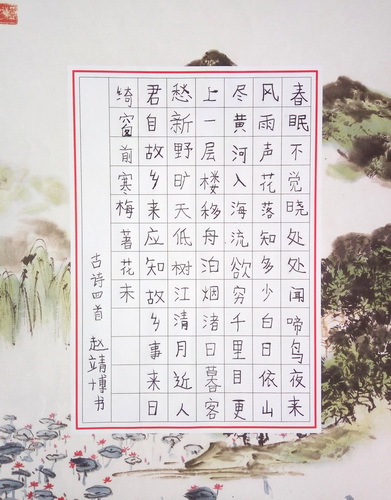 春眠不觉晓处处闻啼鸟夜来
风雨声花落知多少白日依山
尽黄河入海流欲穷千里目更
上一层楼移舟泊烟渚日暮客
愁新野旷天低树江清月近人
君自故乡来应知故乡事来日
绮窗前寒梅著花未
古诗四首 赵靖博书